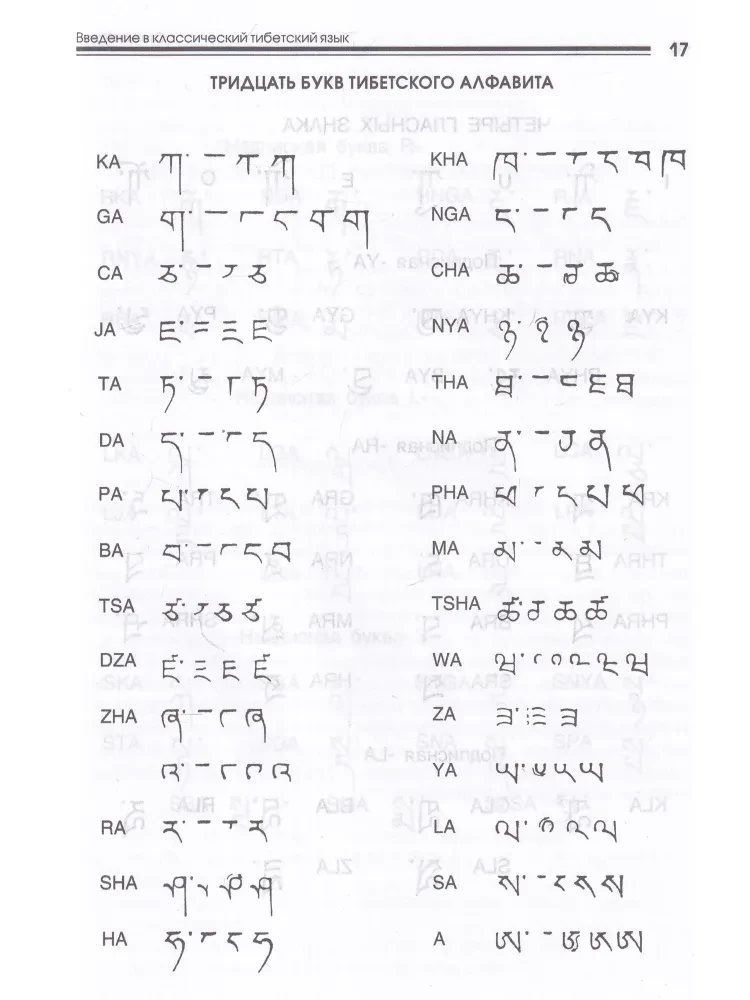 Введение в классический тибетский язык 17
ТРИДЦАТЬ БУКВ ТИБЕТСКОГО АЛФАВИТА
KA ཀ་ ཀ KHA ཁ་ ཁ
GA ག་ ག NGA ང་ ང
CA ཅ་ ཅ CHA ཆ་ ཆ
JA ཇ་ ཇ NYA ཉ་ ཉ
TA ཏ་ ཏ THA ཐ་ ཐ
DA ད་ ད NA ན་ ན
PA པ་ པ PHA ཕ་ ཕ
BA བ་ བ MA མ་ མ
TSA ཙ་ ཙ TSHA ཚ་ ཚ
DZA ཛ་ ཛ WA ཝ་ ཝ
ZHA ཞ་ ཞ ZA ཟ་ ཟ
འ་ འ YA ཡ་ ཡ
RA ར་ ར LA ལ་ ལ
SHA ཤ་ ཤ SA ས་ ས
HA ཧ་ ཧ A ཨ་ ཨ